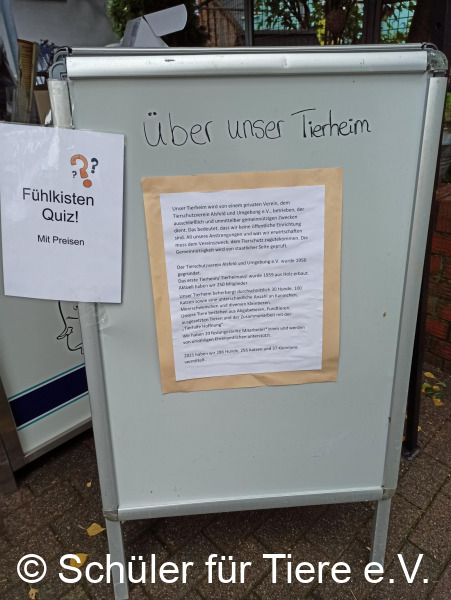 Über unser Tierheim
??
?
Fühlkisten
Quiz!
Mit Preisen
Unser Tierheim wird von einem privaten Verein, dem
Tierschutzverein Alsfeld und Umgebung e.V., betrieben, der
ausschließlich und unmittelbar gemeinnützigen Zwecken
dient. Das bedeutet, dass wir keine öffentliche Einrichtung
sind. All unsere Anstrengungen und was wir erwirtschaften
muss dem Vereinszweck, dem Tierschutz zugutekommen. Die
Gemeinnützigkeit wird von staatlicher Seite geprüft.
Der Tierschutzverein Alsfeld und Umgebung e.V. wurde 1958
gegründet.
Das erste Tierheim/ Tierheimasyl wurde 1959 aus Holz erbaut.
Aktuell haben wir 350 Mitglieder.
Unser Tierheim beherbergt durchschnittlich 30 Hunde, 100
Katzen sowie eine unterschiedliche Anzahl an Kaninchen,
Meerschweinchen und diversen Kleintieren.
Unsere Tiere bestehen aus Abgabetieren, Fundtieren,
ausgesetzten Tieren und der Zusammenarbeit mit der
„Tierhilfe Hoffnung".
Wir haben 20 festangestellte Mitarbeiter*innen und werden
von unzähligen Ehrenamtlichen unterstützt.
2021 haben wir 195 Hunde, 256 Katzen und 37 Kleintiere
vermittelt.
© Schüler für Tiere e.V.